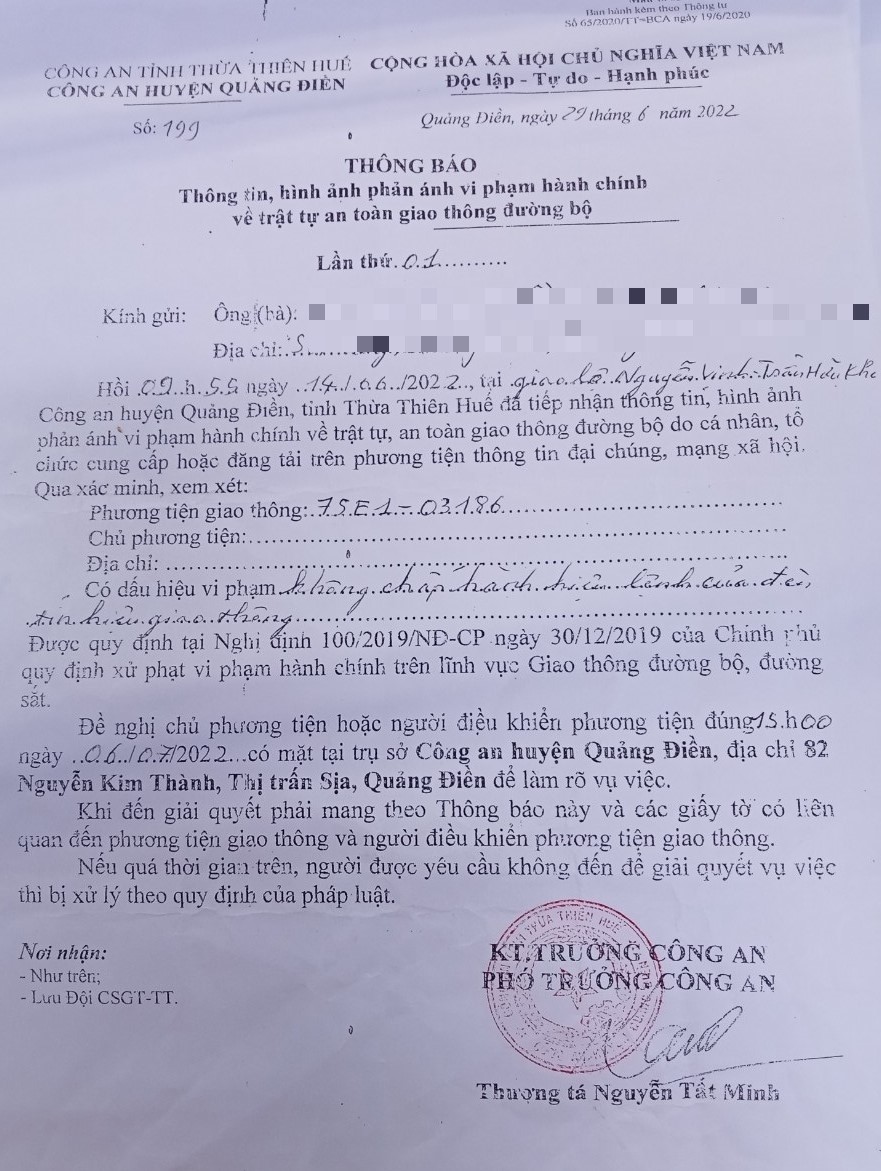 Ban hành kèm theo Thông tư
Số 65/2020/TT-BCA ngày 19/6/2020
CÔNG AN TỈNH THỪA THIÊN HUẾ
CÔNG AN HUYỆN QUẢNG ĐIỀN
CỘNG HÒA XÃ HỘI CHỦ NGHĨA VIỆT NAM
Độc lập - Tự do - Hạnh phúc
Số: 199
Quảng Điền, ngày 29 tháng 6 năm 2022
THÔNG BÁO
Thông tin, hình ảnh phản ánh vi phạm hành chính
về trật tự an toàn giao thông đường bộ
Lần thứ.01..........
Kính gửi: Ông (bà):
Địa chỉ:
Hồi .09.h.55 ngày ..14./.06../2022.., tại .giao lộ Nguyễn Vịnh - Trần Hữu Khác
Công an huyện Quảng Điền, tỉnh Thừa Thiên Huế đã tiếp nhận thông tin, hình ảnh
phản ánh vi phạm hành chính về trật tự, an toàn giao thông đường bộ do cá nhân, tổ
chức cung cấp hoặc đăng tải trên phương tiện thông tin đại chúng, mạng xã hội.
Qua xác minh, xem xét:
Phương tiện giao thông: 75E1-03186
Chủ phương tiện:
Địa chỉ:
Có dấu hiệu vi phạm không chấp hành hiệu lệnh của đèn
tín hiệu giao thông
Được quy định tại Nghị định 100/2019/NĐ-CP ngày 30/12/2019 của Chính phủ
quy định xử phạt vi phạm hành chính trên lĩnh vực Giao thông đường bộ, đường
sắt.
Đề nghị chủ phương tiện hoặc người điều khiển phương tiện đúng 15.h00
ngày ..06./07/2022...có mặt tại trụ sở Công an huyện Quảng Điền, địa chỉ 82
Nguyễn Kim Thành, Thị trấn Sịa, Quảng Điền để làm rõ vụ việc.
Khi đến giải quyết phải mang theo Thông báo này và các giấy tờ có liên
quan đến phương tiện giao thông và người điều khiển phương tiện giao thông.
Nếu quá thời gian trên, người được yêu cầu không đến để giải quyết vụ việc
thì bị xử lý theo quy định của pháp luật.
Nơi nhận:
- Như trên;
- Lưu Đội CSGT-TT.
KT.TRƯỞNG CÔNG AN
PHÓ TRƯỞNG CÔNG AN
THỪA THIÊN HUẾ
Thượng tá Nguyễn Tất Minh